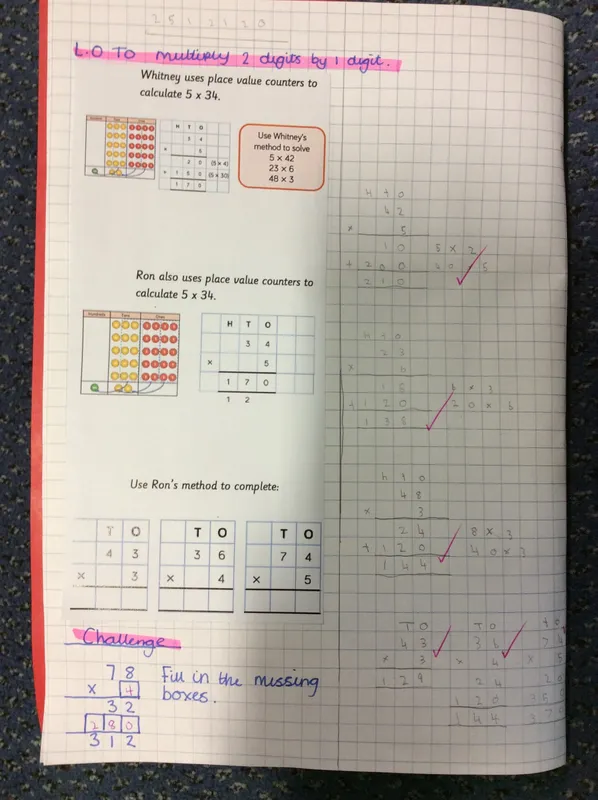 2 5 1 2 1 2 0
L.O To multiply 2 digits by 1 digit.
Whitney uses place value counters to
calculate 5 x 34.
Hundreds Tens Ones
H T O
3 4
× 5
2 0 (5 × 4)
+ 1 5 0 (5 × 30)
1 7 0
Use Whitney's
method to solve
5 × 42
23 × 6
48 × 3
Ron also uses place value counters to
calculate 5 x 34.
Hundreds Tens Ones
H T O
3 4
× 5
1 7 0
1 2
Use Ron's method to complete:
T O
4 3
× 3
T O
3 6
× 4
T O
7 4
× 5
Challenge
7 8
x 4
3 2
2 8 0
3 1 2
Fill in the missing
boxes.
H t o
4 2
× 5
1 0 5 × 2
+ 2 0 0 40 × 5
2 1 0
h t o
2 3
× 6
1 8 6 × 3
+ 1 2 0 2 0 × 6
1 3 8
h t o
4 8
× 3
2 4 8 × 3
+ 1 2 0 4 0 × 3
1 4 4
T O
4 3
× 3
1 2 9
T O
3 6
× 4
2 4
1 2 0
1 4 4